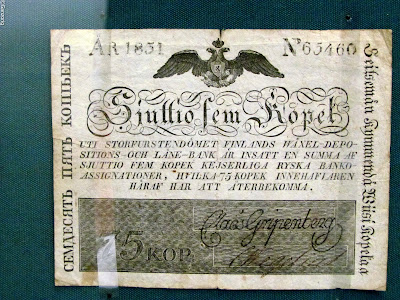 AR 1831 No 65460
Sjuttio fem Kopek
UTI STORFURSTENDÖMET FINLANDS WÄXEL-DEPO-
SITIONS-OCH LÅNE-BANK ÄR INSATT EN SUMMA AF
SJUTTIO FEM KOPEK KEJSERLIGA RYSKA BANKO
ASSIGNATIONER, HVILKA 75 KOPEK INNEHAFVAREN
HÄRAF HAR ATT ÅTERBEKOMMA.
Claës Gripenberg
75 KOP.
СЕМДЕСЯТЬ ПЯТЬ КОПѢЕКЪ
Seitsemän kymmendä Wiisi Kopekaa